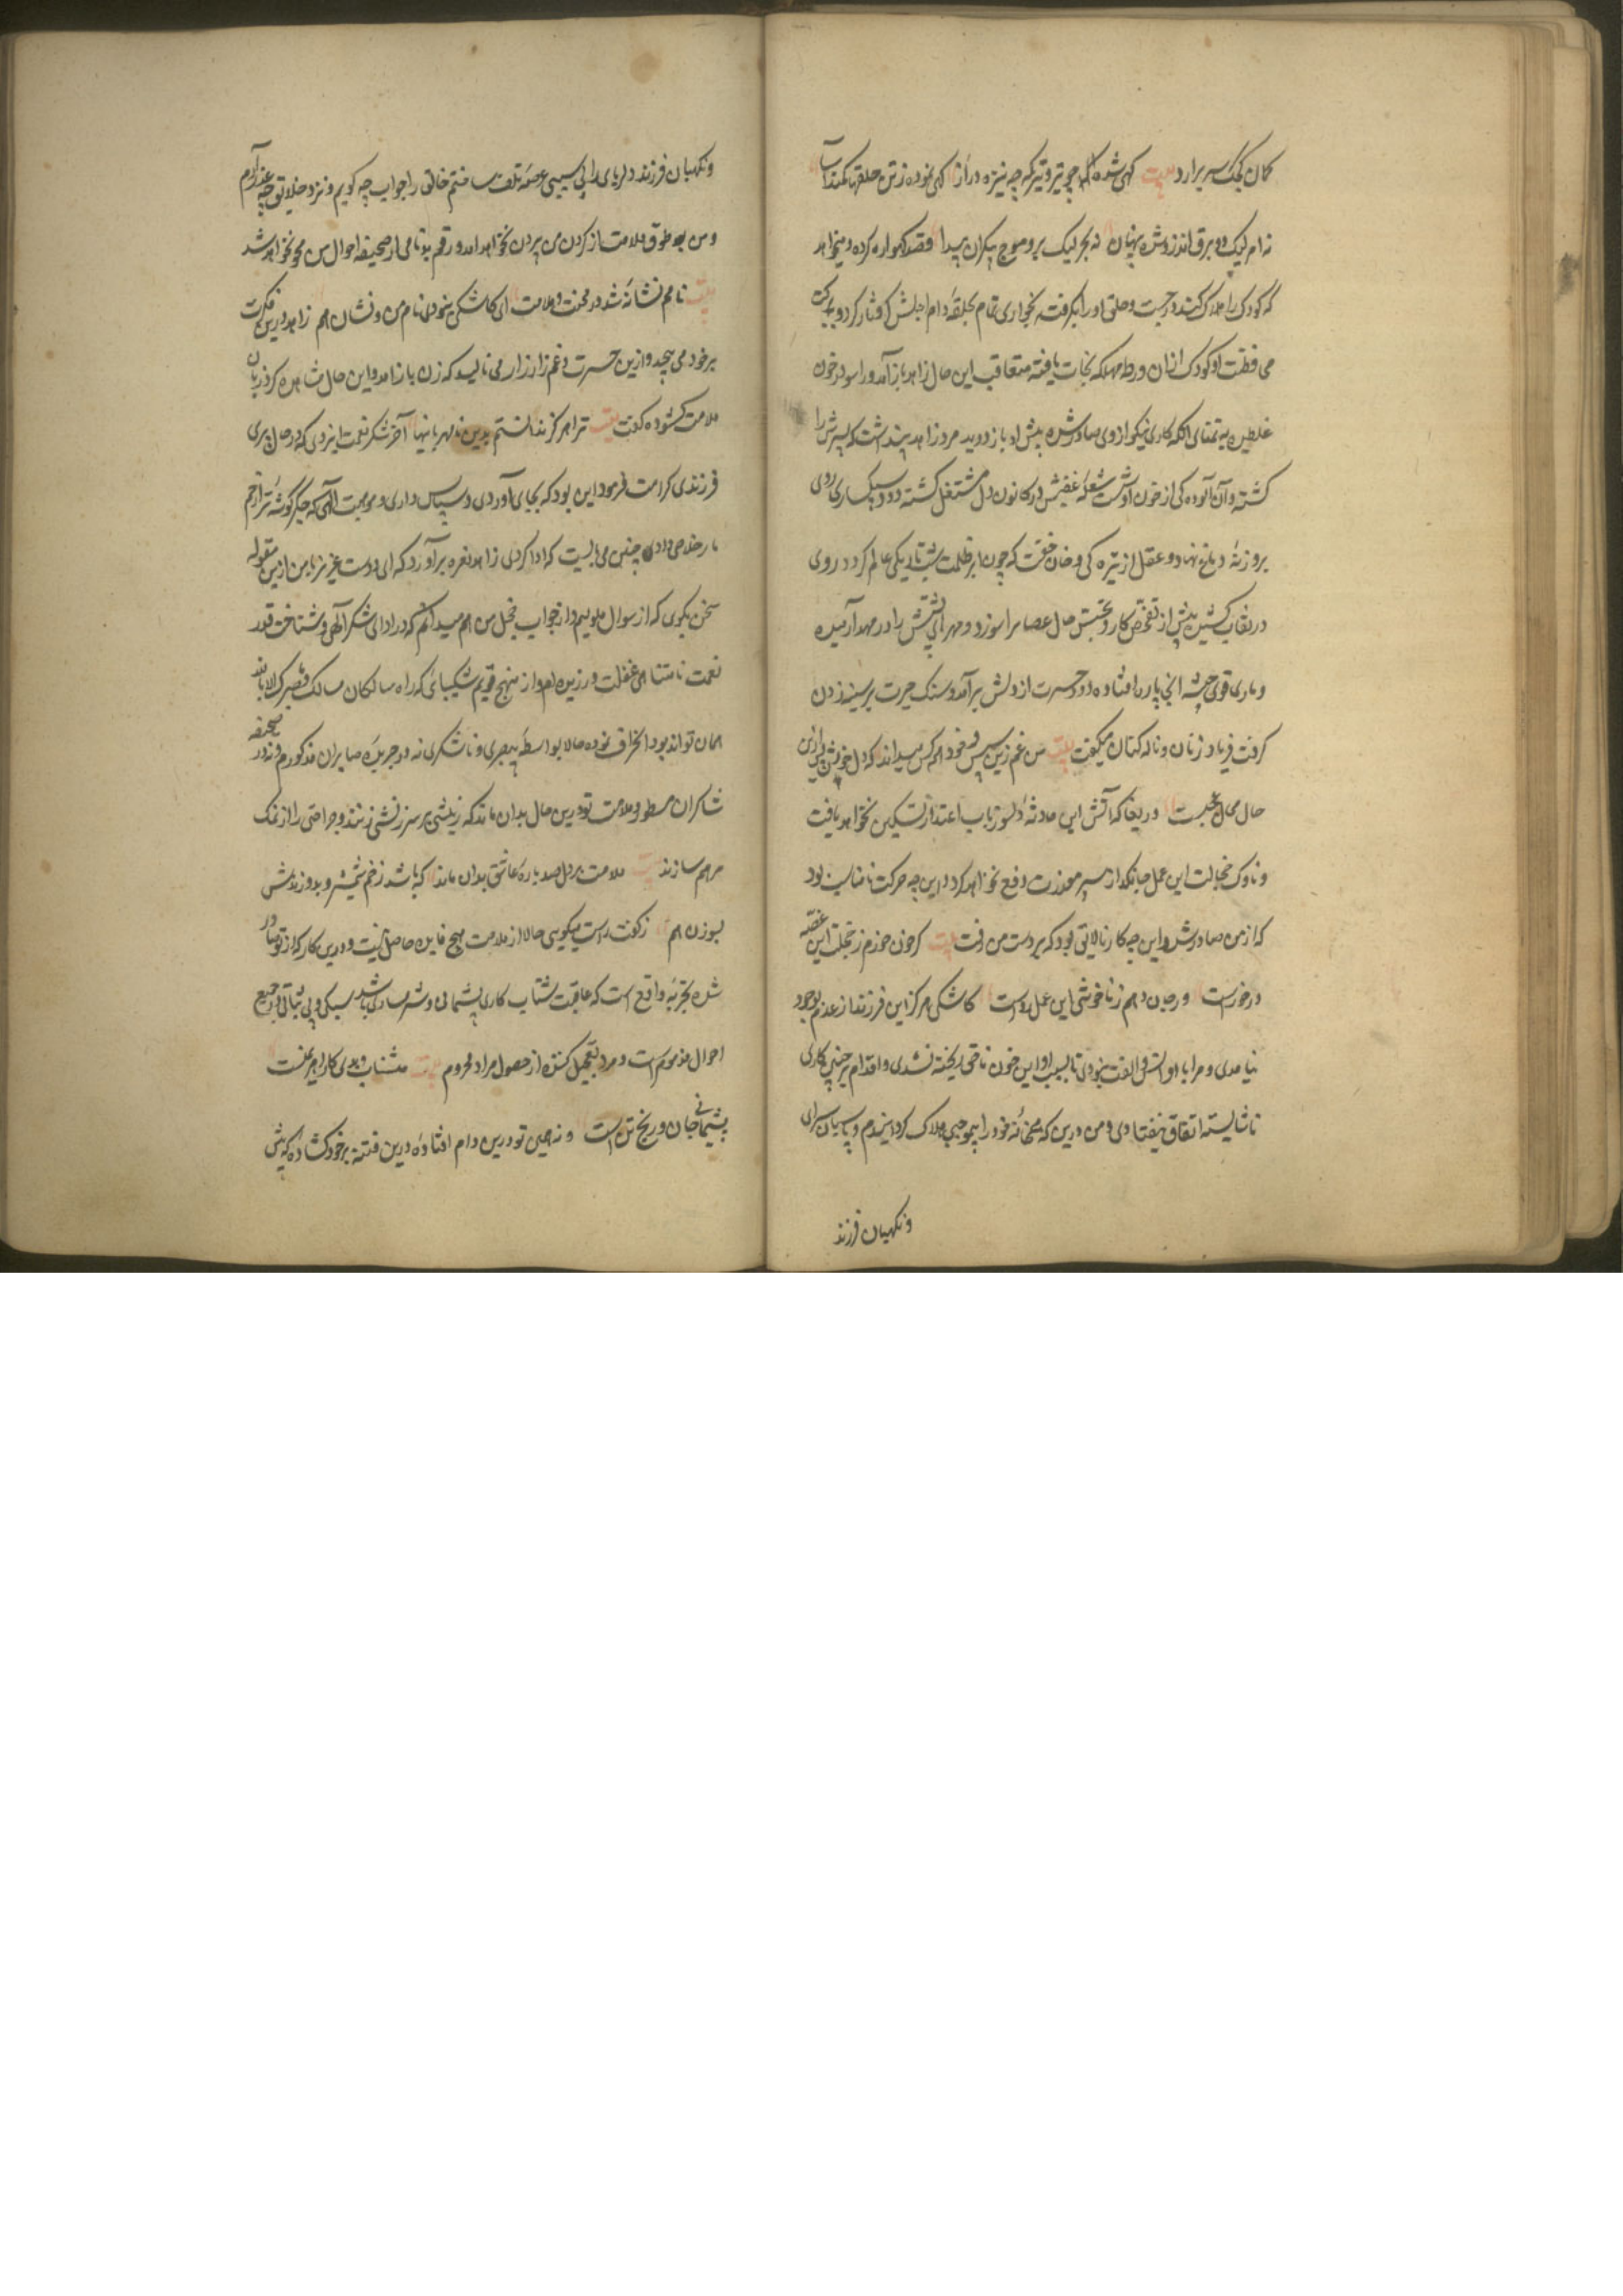 کمان کجک سر برارد بیت کهی شده چو تیر و تیر که چه نیزه دراز کهی نموده ز تن حلقها کمند آسا
نه ام لیک دو برق اندرو شده پنهان نه بحر لیک برو موج بیکران پیدا قصد کهواره کرده و میخواهد
که کودک را هلاک کند در جست و حلق او را بکرفت بخواری تمام بحلقه دام اجلش گرفتار کرد و ببرکت
محافظت او کودک ازان ورطه مهلکه نجات یافته متعاقب این حال زاهد باز آمد و راسو در خون
غلطیده به تمنای انکه کاری نیکو ازوی صادر شده پیش او باز دوید مرد زاهد پنداشت که پسرش را
کشته و آن آلوده کی از خون اوست شعله غضبش در کانون دل مشتعل کشته دود سبکساری روی
بروزنه دماغ نهاد و عقل از تیره کی دخان خفت که چون ابر ظلمت تاریکی عالم کردد روی
در نقاب کشیده پیش از تفحص کار و تجسس حال عصا بر راسو زد و مهره پشتش را در مهد آرمیده
و ماری قوی جثه انجا پاره افتاده دود حسرت از دلش برآمد و سنک حیرت بر سینه زدن
کرفت فریاد زنان و ناله کنان میکفت بیت من و غم زین سپس خود همه کس میداند که دل خوش پس ازین
حال محال عجبست دریغا که آتش این حادثه دلسوز بآب اعتذار تسکین نخواهد یافت
و ناوک خجالت این عمل جانکداز بسپر معذرت دفع نخواهد کرد و این چه حرکت نامناسب بود
که از من صادر شد و این چه کار نالایق بود که بر دست من رفت بیت کر خون خورم ز خجلت این غصه
در خورست ور جان دهم ز ناخوشی این عمل رواست کاشکی هرکز این فرزند از عدم بوجود
نیامدی و مرا با او انس و الفت نبودی تا بسبب او این خون ناحق ریخته نشدی و اقدام بر چنین کاری
ناشایسته اتفاق نیفتادی و من درین که همخانه خود را بی موجب هلاک کردانیدم و پاسبان سرای
ونکهبان فرزند
ونکهبان فرزند دلربای را بی سببی عرصه تلف ساختم خالق را جواب چه کویم و نزد خلایق چه عذر آرم
و من بعد طوق ملامت از کردن من بیرون نخواهد امد و رقم بدنامی از صحیفه احوال من محو نخواهد شد
بیت نامم نشانه شد در محنت و ملامت ای کاشکی نبودی نام من و نشان هم زاهد درین فکرت
برخود می پیچد و ازین حسرت و غم زار زار می نالید که زن باز امد و این حال مشاهده کرد زبان
ملامت کشوده کفت بیت ترا هرکز ندانستم بدین نامهربانیها آخر شکر نعمت ایزدی که در حال پیری
فرزندی کرامت فرمود این بود که بجای آوردی و سپاس داری و موهبت الهی که جکرکوشه ترا از زخم
مار خلاصی داد چنین می بایست که ادا کردی زاهد نعره برآورد که ای دوست عزیز با من ازین مقوله
سخن مکوی که از سوال ملولیم و از جواب خجل من هم میدانم که در ادای شکر آلهی و شناخت قدر
نعمت نامتناهی غفلت ورزیده ام و از منهج قویم شکیبائی که راه سالکان مسالک وما صبرک الا بالله
همان تواند بود انحراف نموده حالا بواسطه بیصبری و ناشکری نه در جریده صابران مذکورم و نه در صحیفه
شاکران مسطور و ملامت تو درین حال بدان ماند که ریشی بر سر ریشی زنند و جراحتی را از نمک
مرهم سازند بیت ملامت بر دل صد پاره عاشق بدان ماند که باشد زخم شمشیر و بدوزندش
بسوزن هم زن کفت راست میکویی حالا از ملامت هیچ فایده حاصل نیست و درین کار که از تو صادر
شده تجربه واقع است که عاقبت شتاب کاری پشیمانی و شرمساری باشد سبکی و بی ثباتی در جمیع
احوال مذمومست و مرد تعجیل کننده از حصول مراد محروم بیت شتاب و بدی کار اهرمنست
پشیمانی جان و رنج تن است و نه همین تو درین دام افتاده و درین فتنه بر خود کشاده که پیش